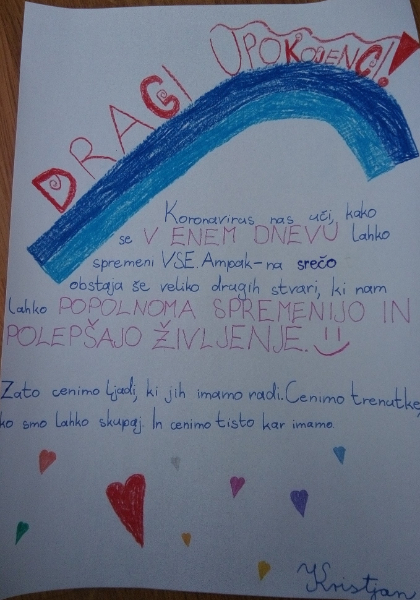 DRAGI UPOKOJENCI!
Koronavirus nas uči, kako
se V ENEM DNEVU lahko
spremeni VSE. Ampak-na srečo
obstaja še veliko drugih stvari, ki nam
lahko POPOLNOMA SPREMENIJO IN
POLEPŠAJO ŽIVLJENJE.
Zato cenimo ljudi, ki jih imamo radi. Cenimo trenutke,
ko smo lahko skupaj. In cenimo tisto kar imamo.
Kristjan